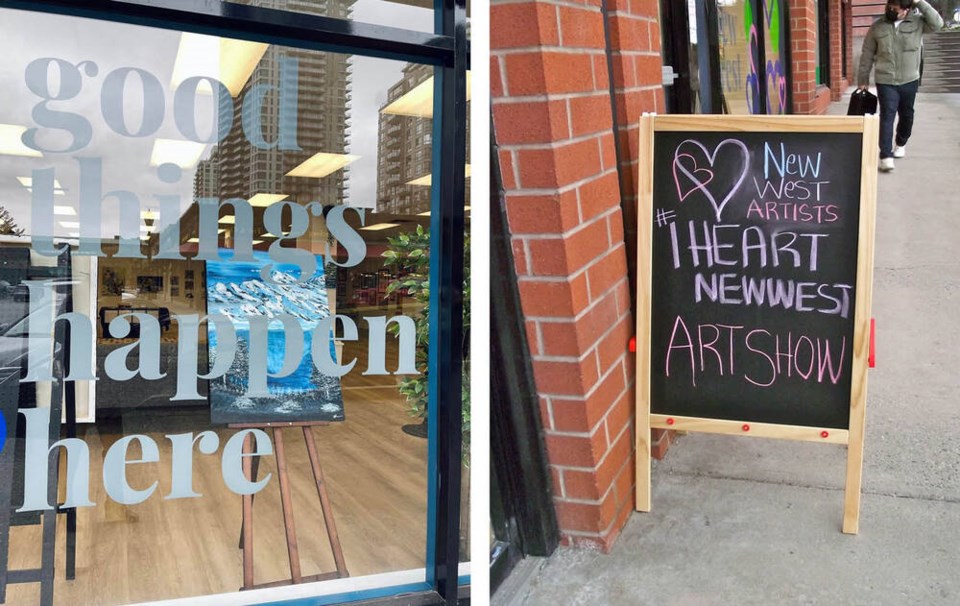 good
things
happen
here
New
West
ARTISTS
#I HEART
NEWWEST
ART SHOW